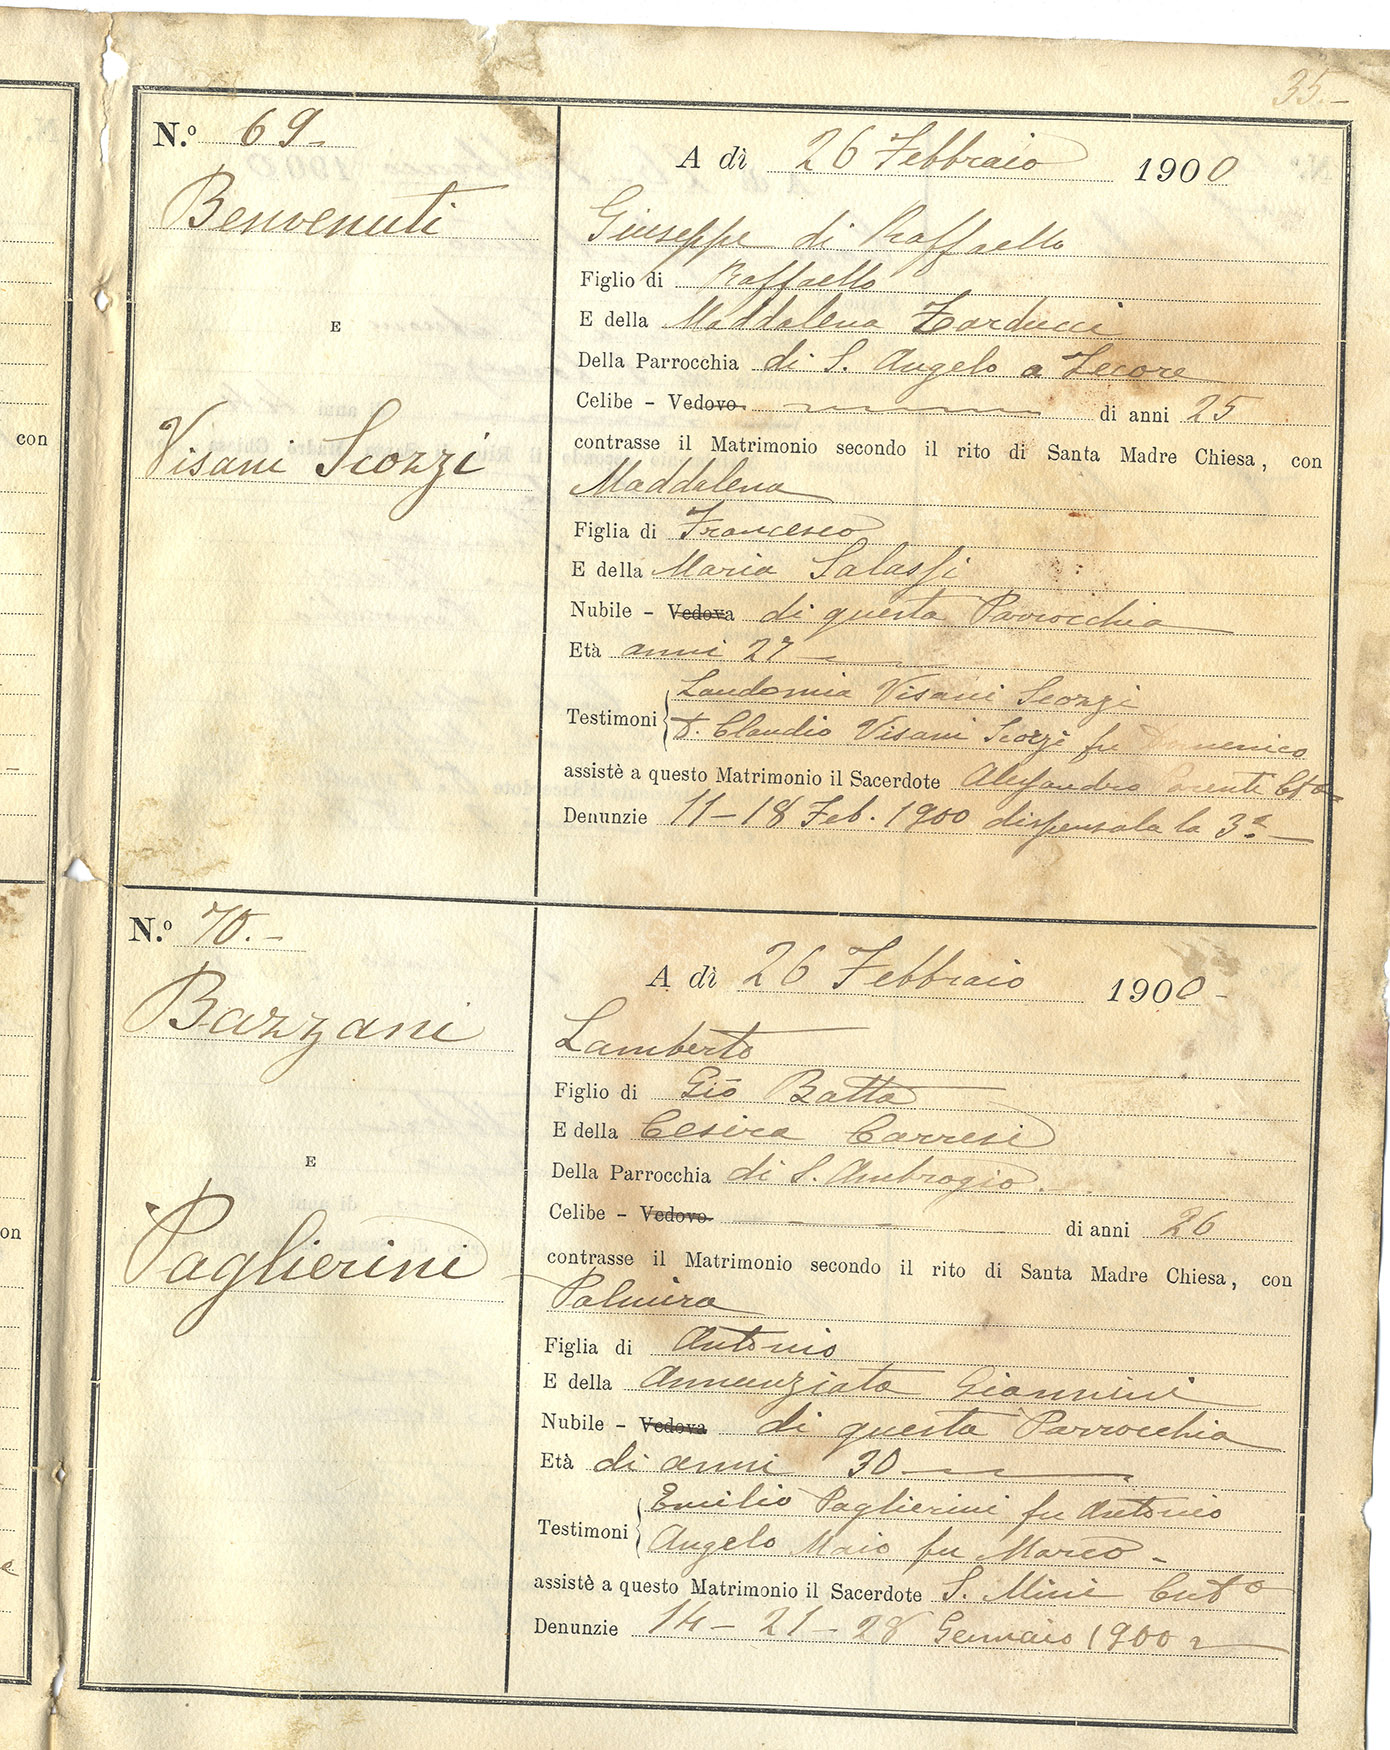 35.-
N.º 69-
Benvenuti
E
Visani Scozzi
A dì 26 Febbraio 1900
Giuseppe di Raffaello
Figlio di Raffaello
E della Maddalena Zarducci
Della Parrocchia di S. Angelo a Lecore
Celibe - Vedovo di anni 25
contrasse il Matrimonio secondo il rito di Santa Madre Chiesa, con
Maddalena
Figlia di Francesco
E della Maria Salassi
Nubile - Vedova di questa Parrocchia
Età anni 27
Testimoni Laudomia Visani Scozzi
D. Claudio Visani Scozzi fu Domenico
assistè a questo Matrimonio il Sacerdote Alessandro Parenti
Denunzie 11-18 Feb. 1900 dispensata la 3ª-
N.º 70.-
Bazzani
E
Paglierini
A dì 26 Febbraio 1900-
Lamberto
Figlio di Gio Batta
E della Cesira Carresi
Della Parrocchia di S. Ambrogio.
Celibe - Vedovo di anni 26
contrasse il Matrimonio secondo il rito di Santa Madre Chiesa, con
Palmira
Figlia di Antonio
E della Annunziata Giannini
Nubile - Vedova di questa Parrocchia
Età di anni 30
Testimoni Emilio Paglierini fu Antonio
Angelo Maio fu Marco-
assistè a questo Matrimonio il Sacerdote S. Mini
Denunzie 14-21-28 Gennaio 1900
con
on